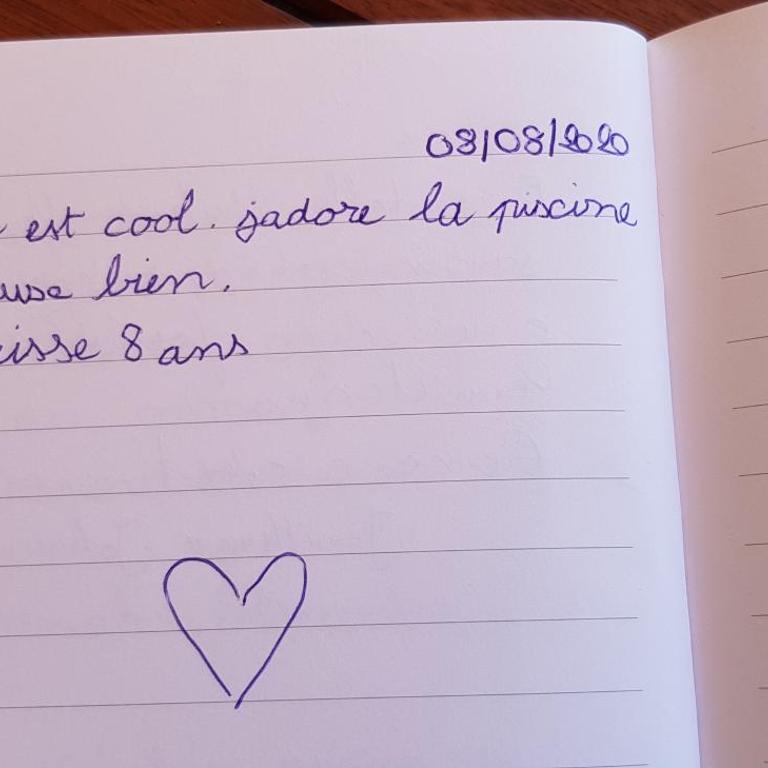 08/08/2020
est cool. jadore la piscine
bien.
8 ans